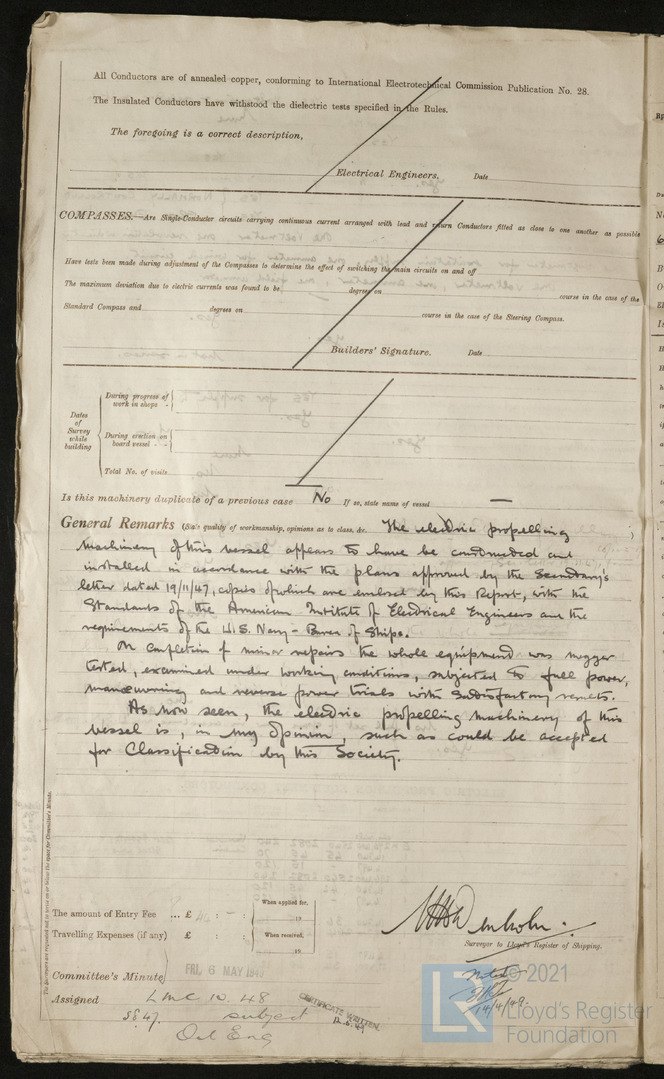 All Conductors are of annealed copper, conforming to International Electrotechnical Commission Publication No. 28.
The Insulated Conductors have withstood the dielectric tests specified in the Rules.
The foregoing is a correct description,
Electrical Engineers. Date
COMPASSES.—Are Single-Conductor circuits carrying continuous current arranged with lead and return Conductors fitted as close to one another as possible
Have tests been made during adjustment of the Compasses to determine the effect of switching the main circuits on and off
The maximum deviation due to electric currents was found to be degrees on course in the case of the
Standard Compass and degrees on course in the case of the Steering Compass.
Builders' Signature. Date
Dates of Survey while building
During progress of work in shops
During erection on board vessel
Total No. of visits
Is this machinery duplicate of a previous case No If so, state name of vessel —
General Remarks (State quality of workmanship, opinions as to class, &c. The electric propelling )
machinery of this vessel appears to have be constructed and
installed in accordance with the plans approved by the Secretary's
letter dated 19/11/47, copies of which are enclosed by this Report, with the
Standards of the American Institute of Electrical Engineers and the
requirements of the U.S. Navy - Bureau of Ships.
On completion of minor repairs the whole equipment was megger
tested, examined under working conditions, subjected to full power,
manoeuvring and reverse power trials with satisfactory results.
As now seen, the electric propelling machinery of this
vessel is, in my opinion, such as could be accepted
for Classification by this Society.
The Surveyors are requested not to write on or below the space for Committee's Minute.
The amount of Entry Fee ... £ : - :
When applied for, 19
Travelling Expenses (if any) £ : :
When received, 19
Surveyor to Lloyd's Register of Shipping.
Committee's Minute FRI. 6 MAY 1949
Assigned LMC 10.48
subject
CERTIFICATE WRITTEN
Noted
14/4/49.
© 2021
LR
Lloyd's Register
Foundation